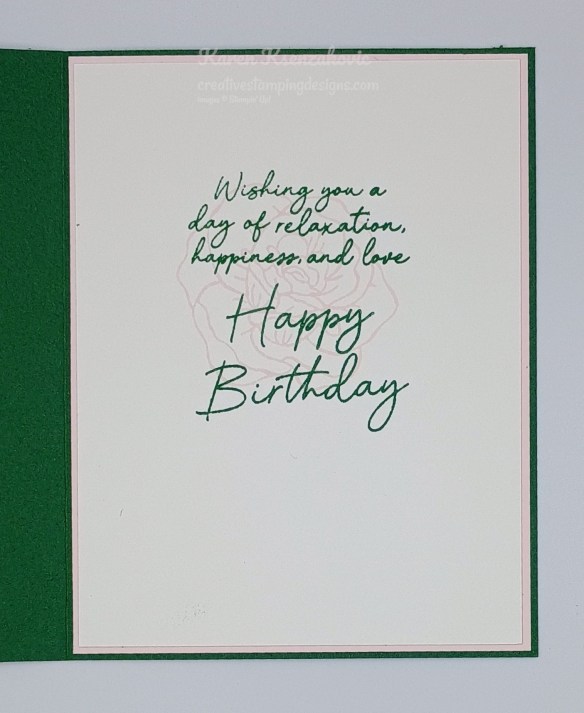 Karen Ksenzakovic
creativestampingdesigns.com
Images © Stampin' Up!
Wishing you a
day of relaxation,
happiness, and love
Happy
Birthday